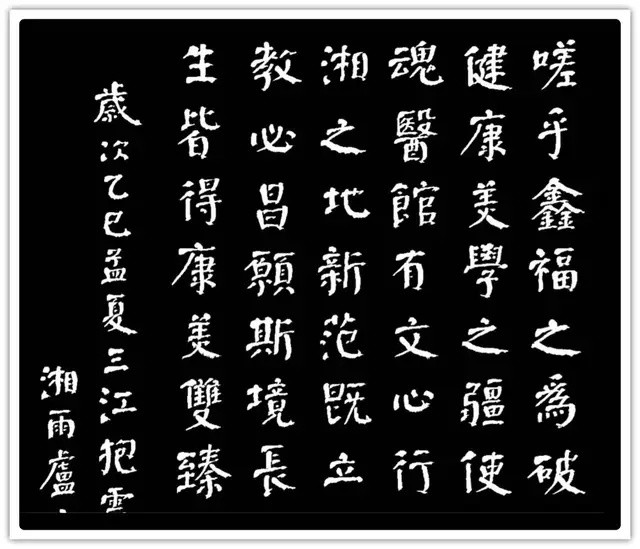 嗟乎鑫福之為破
健康美學之疆使
魂醫館有文心行
湘之地新范既立
教必昌願斯境長
生皆得康美雙臻
歲次乙巳孟夏三江抱雲
湘雨盧